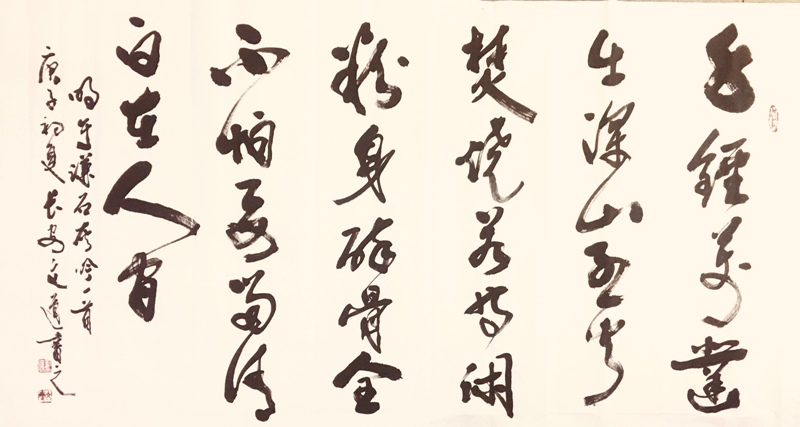 千錘萬鑿
出深山烈火
焚燒若等閑
粉身碎骨全
不怕要留清
白在人間
明于謙石灰吟一首
庚子初夏長安文道書之